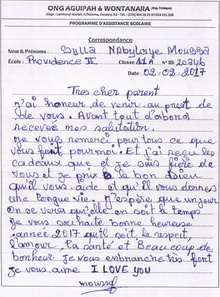 ONG AGUIPAH & WONTANARA
PROGRAMME D'ASSISTANCE SCOLAIRE
Correspondance
Nom & Prénoms Sylla Nabylaye Moussa
École: Providence II Classe: 11A N° 20346
02.03.2017
Tres cher parent
J'ai honneur de venir au prest de
de vous. Avant tout d'abord
recevée mes salitation.
Je vous remerci pour tous ce que
vous font pour moi. Et j'ai reçu les
cadeaux que et je suis fière de
vous et je prix le bon dieu
qu'il vous aide et qu'il vous donnes
une longue vie. J'espère que un jour
on se verra qu'elle en soit le temps
je vous souhaite bonne heureuse
année 2017 qu'il soit le respect,
l'amour. la santé et Beaucoup de
bonheur. Je vous embranche très font
je vous aime I LOVE YOU
moussa